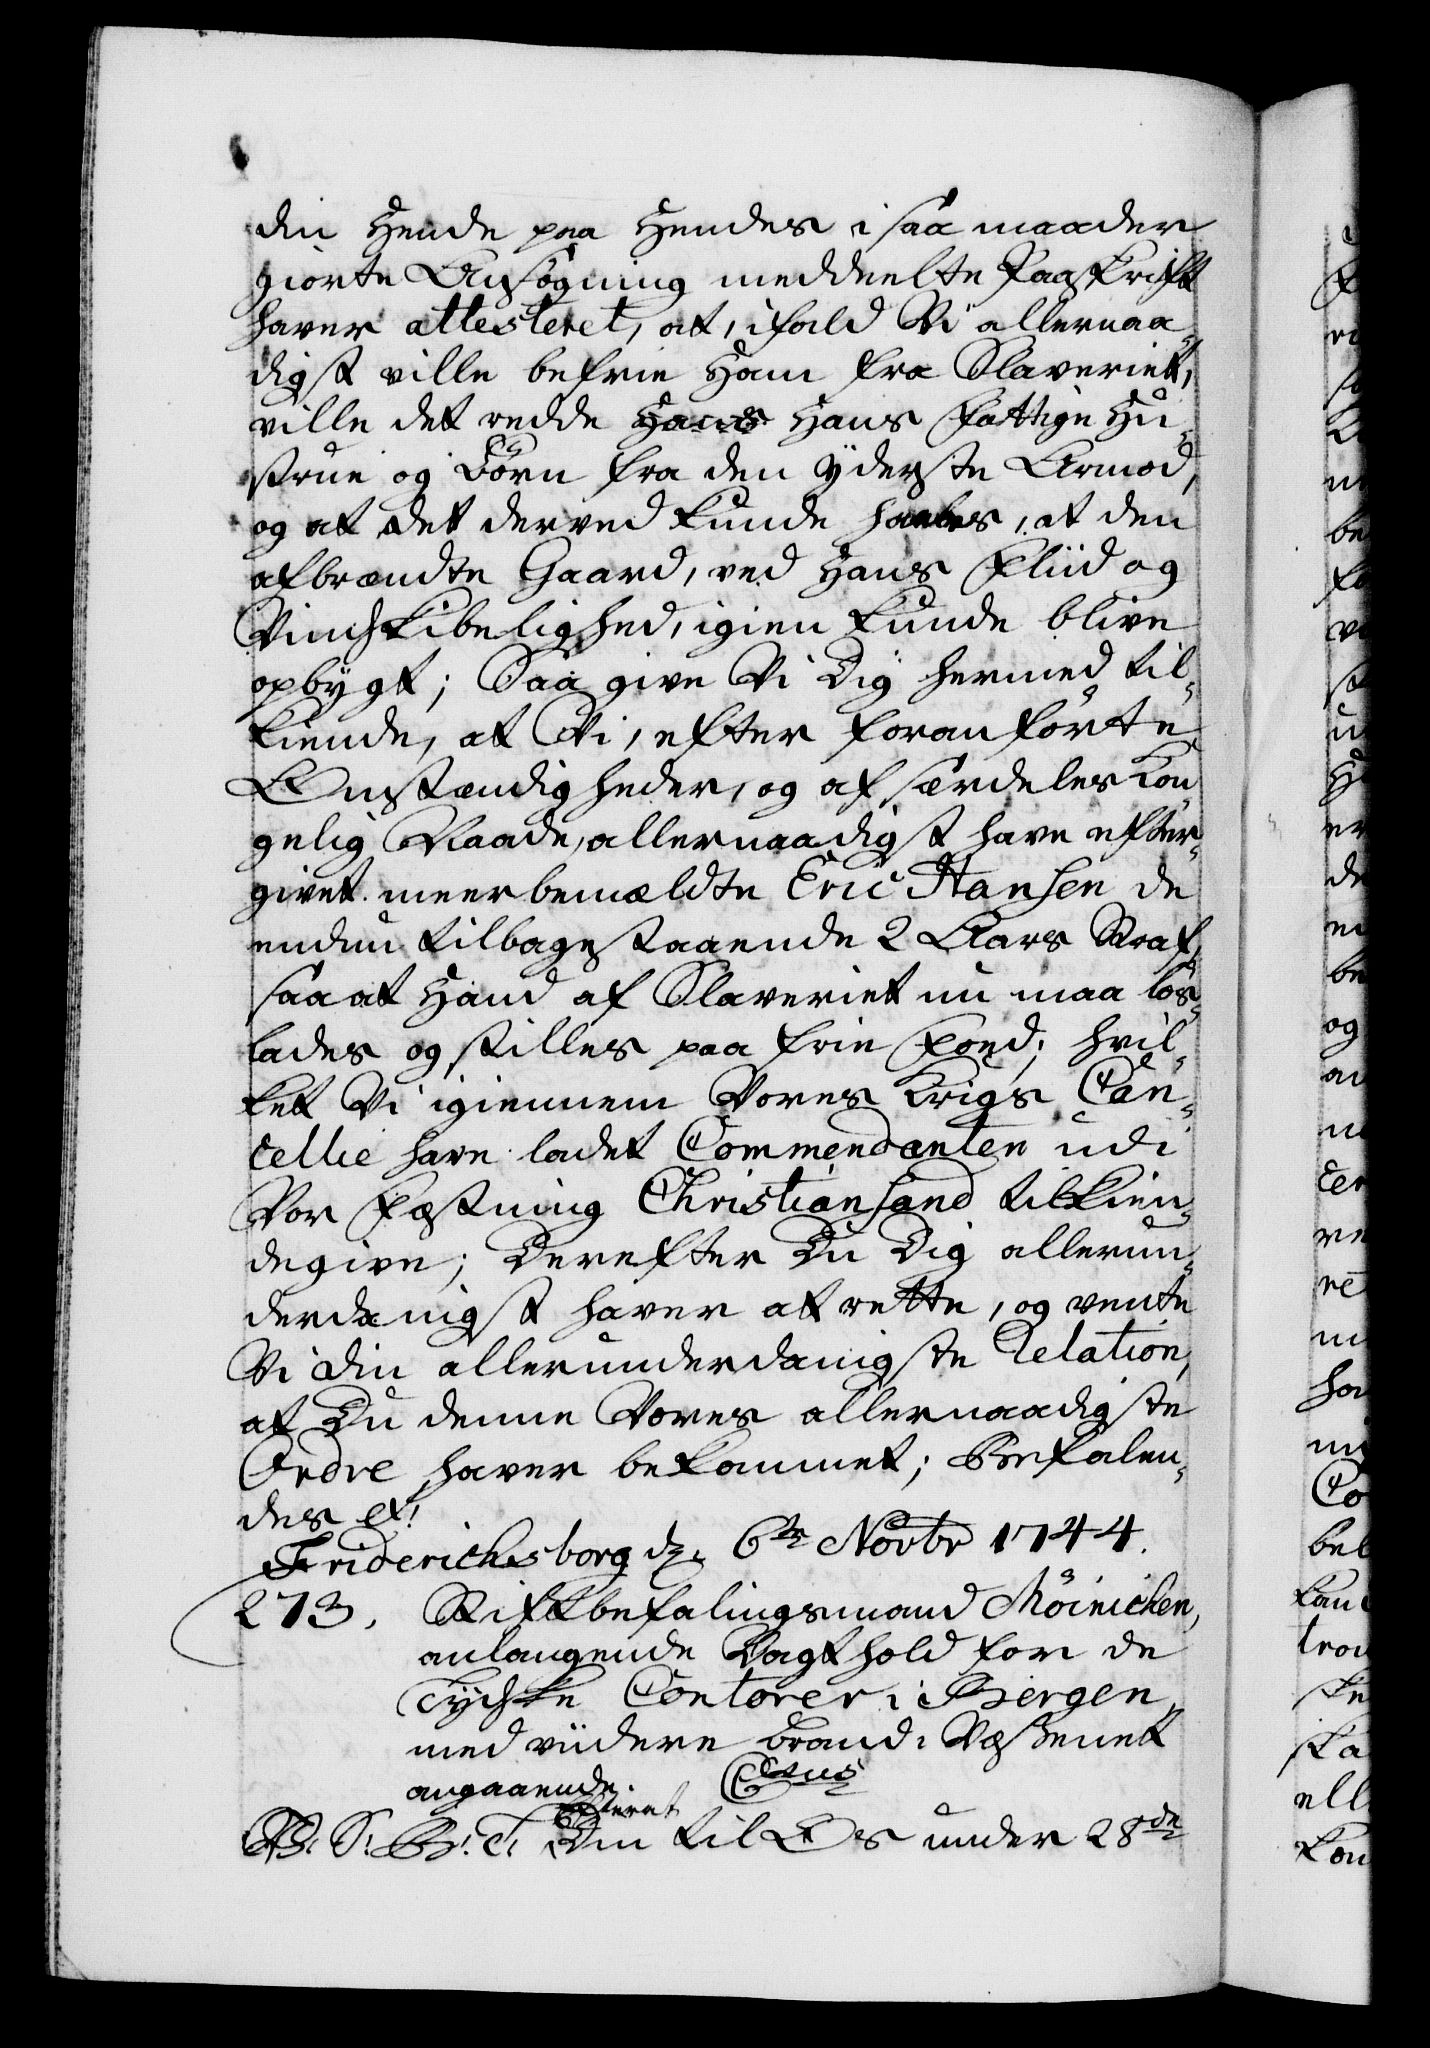 din Hende paa Hendes i saa maader
giorte Ansøgning meddeelte Paaskrift
haver attesteret, at, ifald Vi allernaa-
digst ville befrie Ham fra Slaveriet,
ville det redde Hans Hans fattige Hu-
strue og Børn fra den yderste Armod,
og at det derved kunde haabes, at den
afbrændte Gaard, ved Hans Fliid og
Vindskibelighed, igien kunde blive
opbygt; Saa give Vi Dig hermed til-
kiende, at Vi, efter foranførte
Omstændigheder, og af særdeles Kon
gelig Naade, allernaadigst have efter-
givet meerbemældte Eric Hansen de
endnu tilbagestaaende 2 Aars Straf,
saa at Hand af Slaveriet nu maa løs-
lades og stilles paa frie Foed; hvil-
ket Vi igiennem Vores Krigs Can-
cellie have ladet Commendanten udi
Vor Fæstning Christiansand tilkien-
degive; Derefter Du Dig allerun-
derdanigst haver at rette, og vente
Vi din allerunderdanigste Relation,
at Du denne Vores allernaadigste
Ordre haver bekommet; Befalen-
des etc:
Friderichsborg d. 6te Novbr 1744.
273. Stiftbefalingsmand Möinichen,
anlangende Vagthold for de
Tydske Contorer i Bergen
med viidere Brand-Væsenet
angaaende.
C. S: B: T: Din til Os under 28de